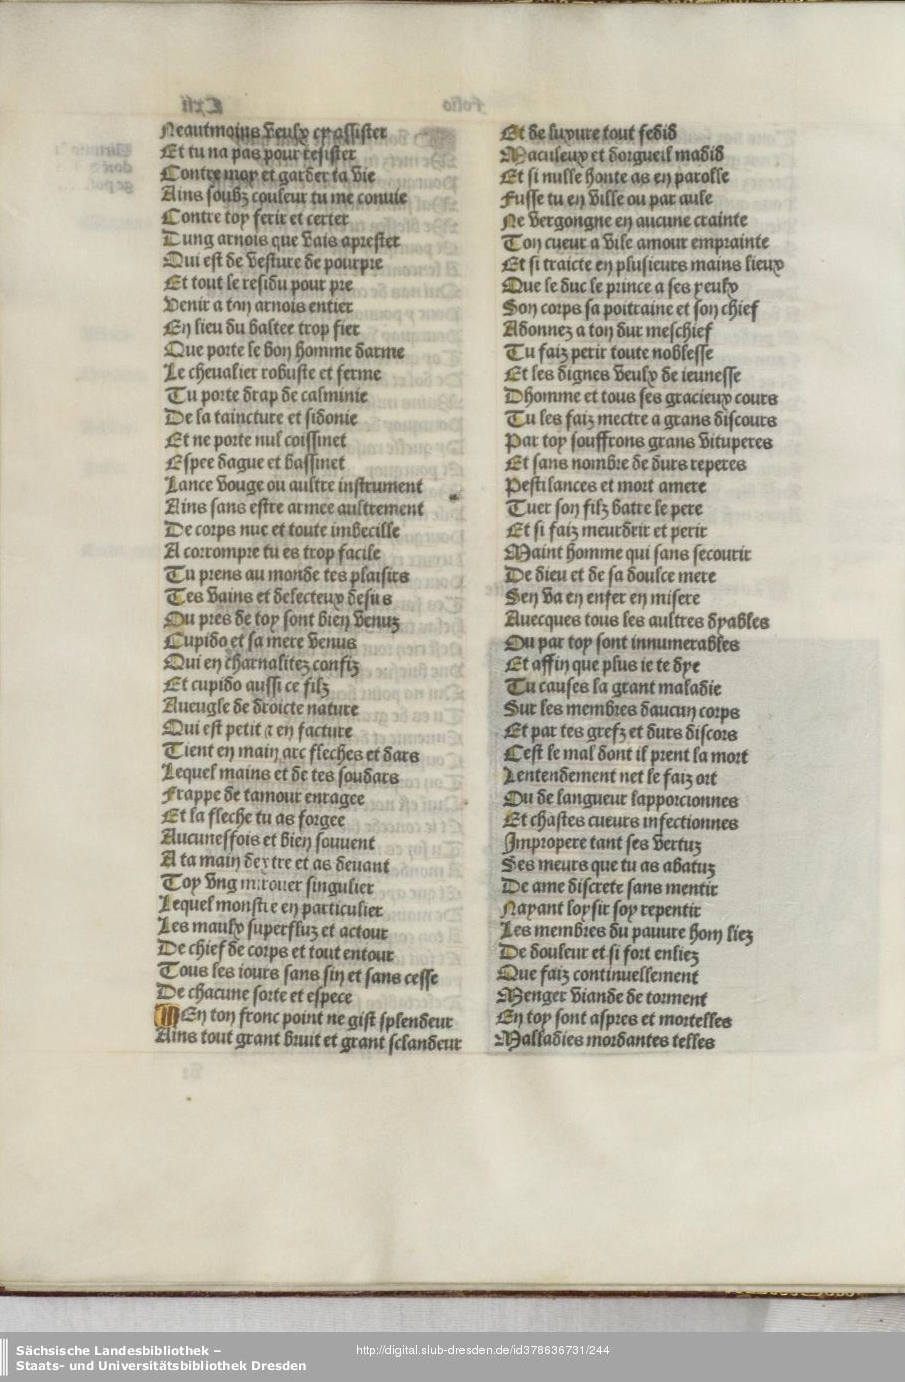 Neautmoins veulx cy assister
Et tu na pas pour resister
Contre moy et garder ta vie
Ains soubz couleur tu me convie
Contre toy ferir et certer
Dung arnois que vais aprester
Qui est de vesture de pourpre
Et tout le residu pour pre
Venir a ton arnois entier
En lieu du baltee trop fier
Que porte le bon homme darme
Le chevalier robuste et ferme
Tu porte drap de calminie
De la taincture et sidonie
Et ne porte nul coissinet
Espee dague et bassinet
Lance vouge ou aultre instrument
Ains sans estre armee aultrement
De corps nue et toute imbecille
A corrompre tu es trop facile
Tu prens au monde tes plaisirs
Tes vains et delecteux desirs
Ou pres de toy sont bien venuz
Cupido et sa mere venus
Qui en charnalitez confiz
Et cupido aussi ce filz
Aveugle de droicte nature
Qui est petit a en facture
Tient en main arc fleches et dars
Lequel mains et de tes souldars
Frappe de tamour enragee
Et la fleche tu as forgee
Aucuneffois et bien souvent
A ta main dextre et as devant
Toy ung mirouer singulier
Lequel monstre en particulier
Les maulx superfluz et actour
De chief de corps et tout entour
Tous les iours sans fin et sans cesse
De chacune sorte et espece
En ton fronc point ne gist splendeur
Ains tout grant bruit et grant sclandeur
Et de luxure tout fedid
Maculeux et dorgueil madid
Et si nulle honte as en parolle
Fusse tu en ville ou par aule
Ne vergongne en aucune crainte
Ton cueur a vile amour emprainte
Et si traicte en plusieurs mains lieux
Que le duc le prince a ses yeulx
Son corps sa poitraine et son chief
Adonnez a ton dur meschief
Tu faiz perir toute noblesse
Et les dignes veulx de ieunesse
Dhomme et tous ses gracieux cours
Tu les faiz mectre a grans discours
Par toy souffrons grans vituperes
Et sans nombre de durs reperes
Pestilances et mort amere
Tuer son filz batre le pere
Et si faiz meurdrir et perir
Maint homme qui sans secourir
De dieu et de sa doulce mere
Sen va en enfer en misere
Avecques tous les aultres dyables
Ou par toy sont innumerables
Et affin que plus ie te dye
Tu causes la grant maladie
Sur les membres daucun corps
Et par tes grefz et durs discors
Cest le mal dont il prent la mort
Lentendement net le faiz ort
Ou de langueur lapporcionnes
Et chastes cueurs infectionnes
Impropere tant ses vertuz
Ses meurs que tu as abatuz
De ame discrete sans mentir
Nayant loysir soy repentir
Les membres du pauure hom liez
De douleur et si fort enliez
Que faiz continuellement
Menger viande de torment
En toy sont aspres et mortelles
Malladies mordantes telles
Sächsische Landesbibliothek –
Staats- und Universitätsbibliothek Dresden
http://digital.slub-dresden.de/id378636731/244